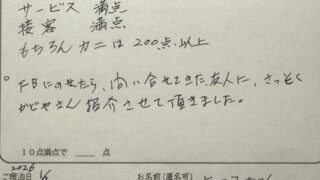 サービス 満点
接客 満点
もちろん カニは 200点以上
。FBにのせたら、問い合せてきた友人に、さっそく
かじやさん紹介させて頂きました。
10点満点で 点
2026
ご宿泊日 1/ お名前(匿名可)